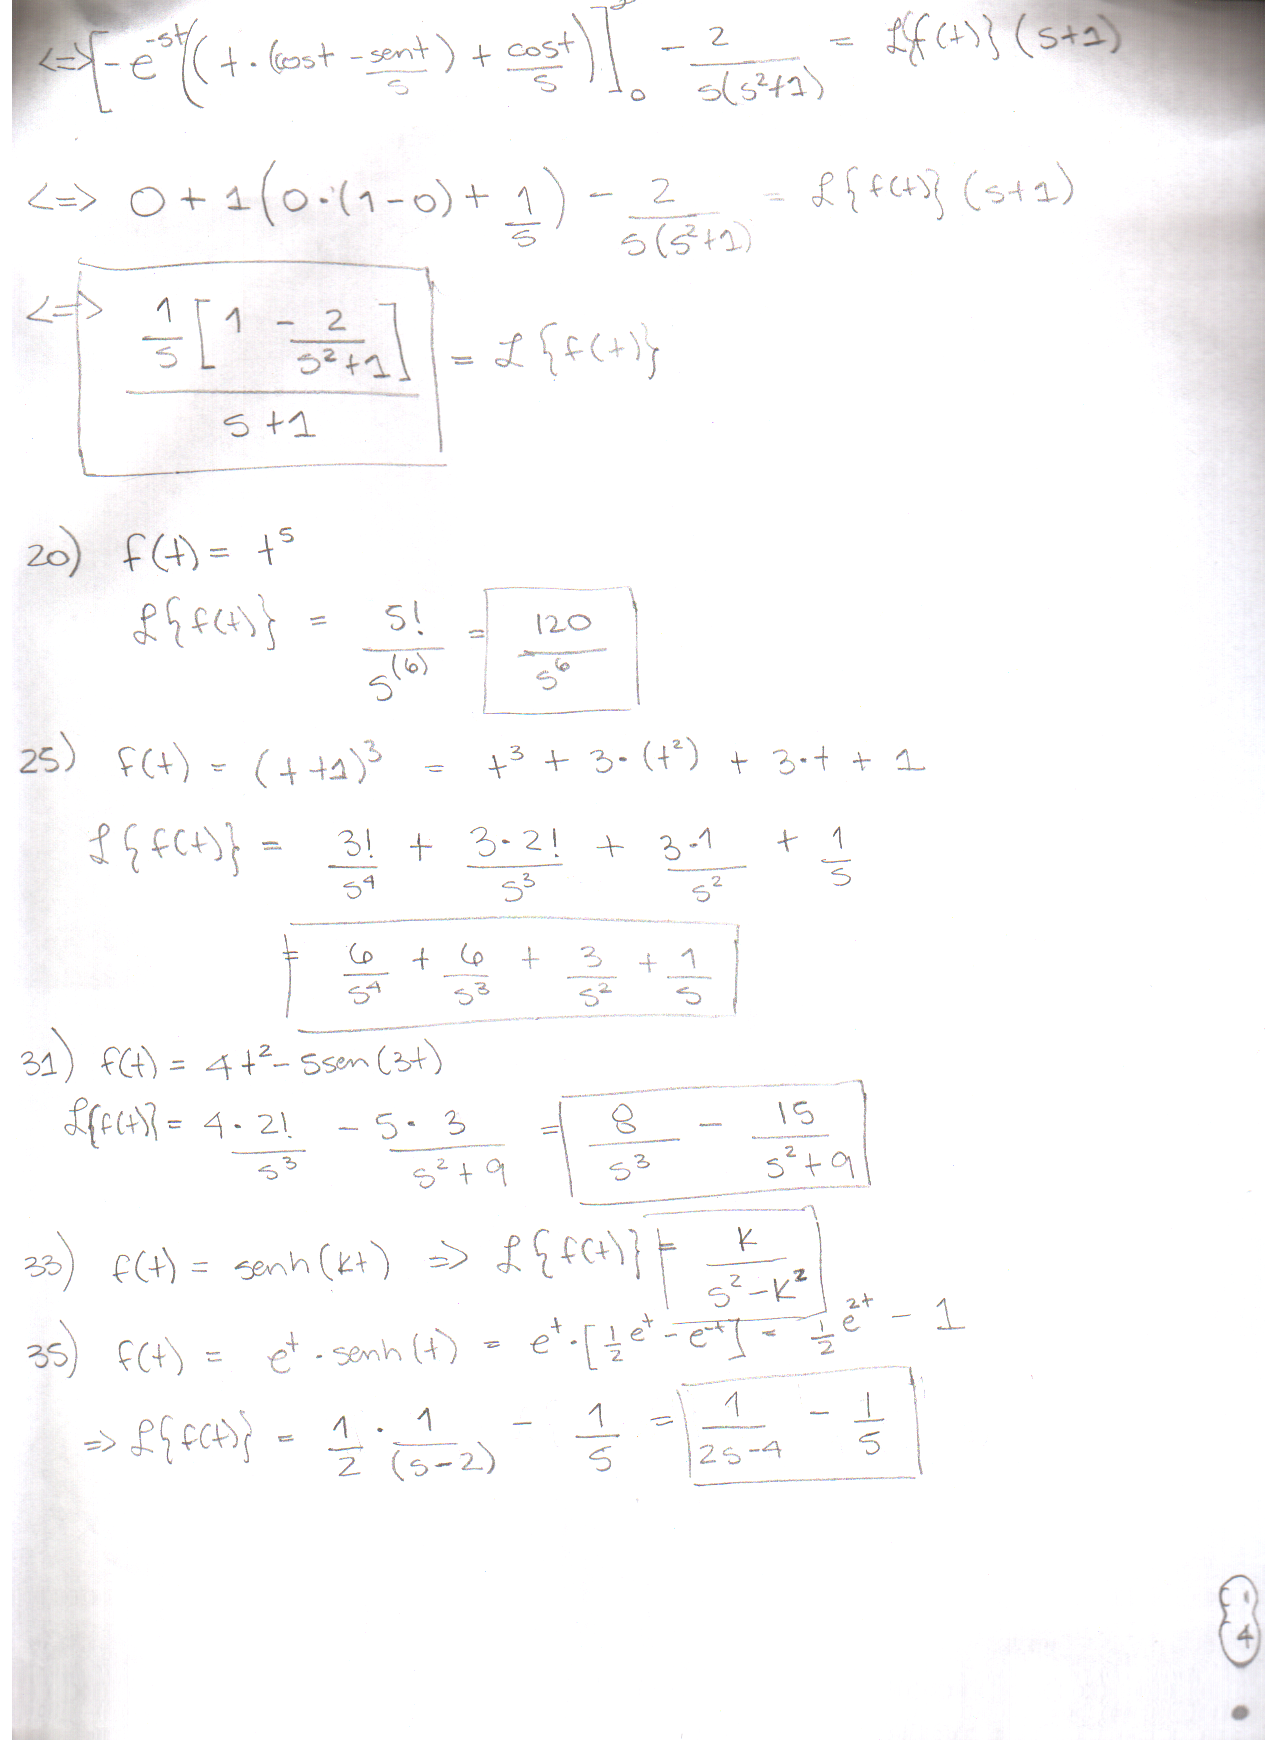 <=> [-e^{-st}(t·(cost - sent/s) + cost/s)]_0 - 2/(s(s²+1)) = ℒ{f(t)}(s+1)
<=> 0 + 1(0·(1-0) + 1/s) - 2/(s(s²+1)) = ℒ{f(t)}(s+1)
<=> (1/s [1 - 2/(s²+1)])/(s+1) = ℒ{f(t)}
20) f(t) = t⁵
ℒ{f(t)} = 5!/s^(6) = 120/s⁶
25) f(t) = (t+1)³ = t³ + 3·(t²) + 3·t + 1
ℒ{f(t)} = 3!/s⁴ + 3·2!/s³ + 3·1/s² + 1/s
= 6/s⁴ + 6/s³ + 3/s² + 1/s
31) f(t) = 4t² - 5sen(3t)
ℒ{f(t)} = 4·2!/s³ - 5·3/(s²+9) = 8/s³ - 15/(s²+9)
33) f(t) = senh(kt) => ℒ{f(t)} = k/(s²-k²)
35) f(t) = e^t · senh(t) = e^t·[1/2 e^t - e^{-t}] = 1/2 e^{2t} - 1
=> ℒ{f(t)} = 1/2 · 1/(s-2) - 1/s = 1/(2s-4) - 1/s
4